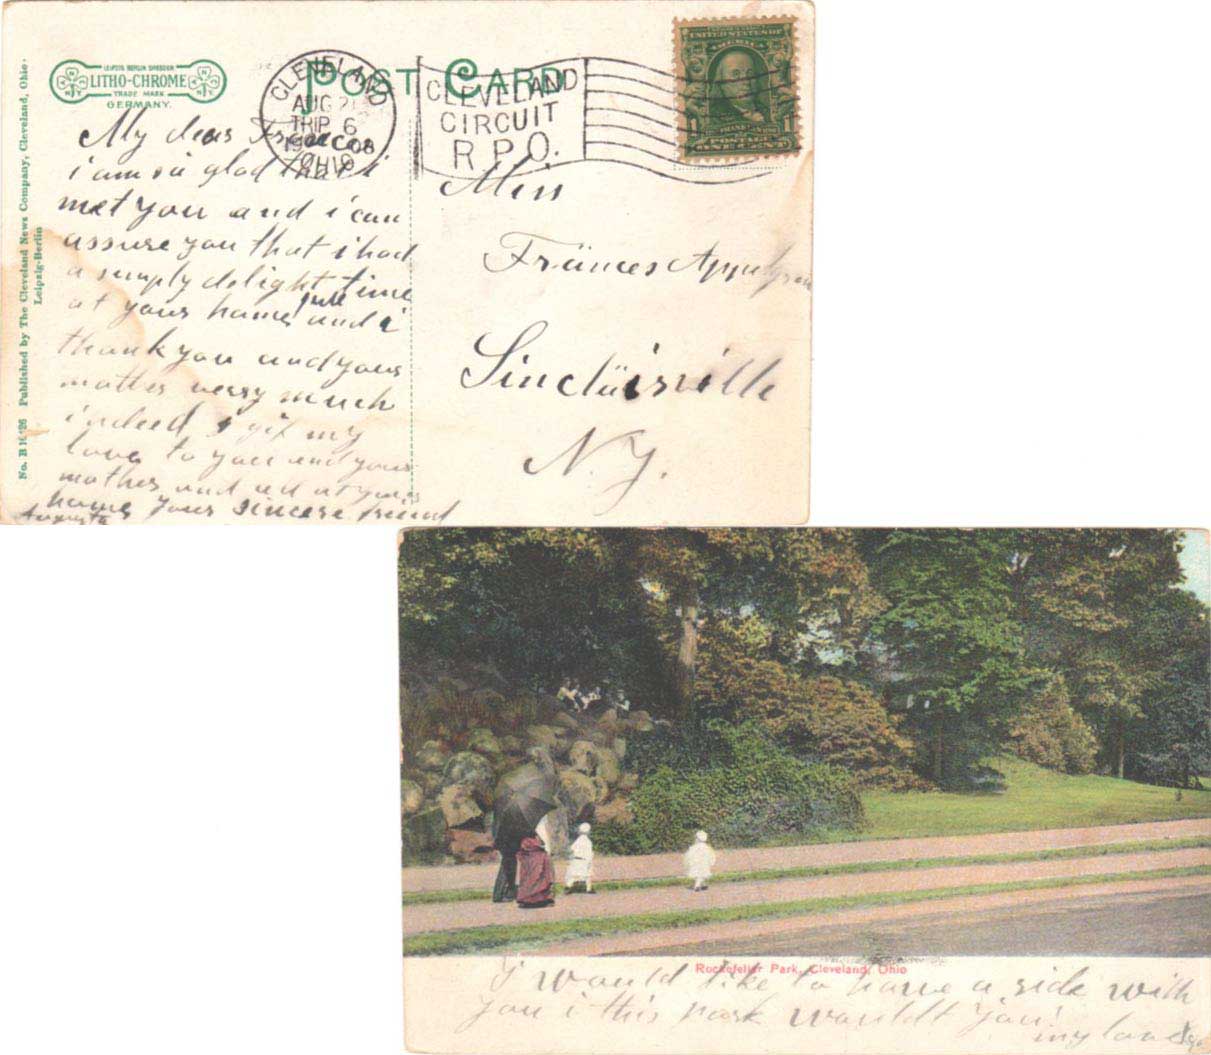 LEIPZIG BERLIN DRESDEN
LITHO-CHROME
TRADE MARK
GERMANY.
POST CARD
CLEVELAND
AUG 2
TRIP 6
1908
OHIO
CLEVELAND
CIRCUIT
R.P.O.
UNITED STATES OF
AMERICA
1 1
ONE CENT
No. B Published by The Cleveland News Company, Cleveland, Ohio.
Leipzig-Berlin
My dear
i am so glad that i
met you and i can
assure you that i had
a simply delight time
at your home and i
thank you and your
mother verry much
indeed i gif my
love to you and your
mother and all at your
home your sincere friend
Augusta
Miss
Fränces
Sinclairville
N.Y.
Rockefeller Park, Cleveland, Ohio
i would like to have a ride with
you i this park wouldt you!
my love